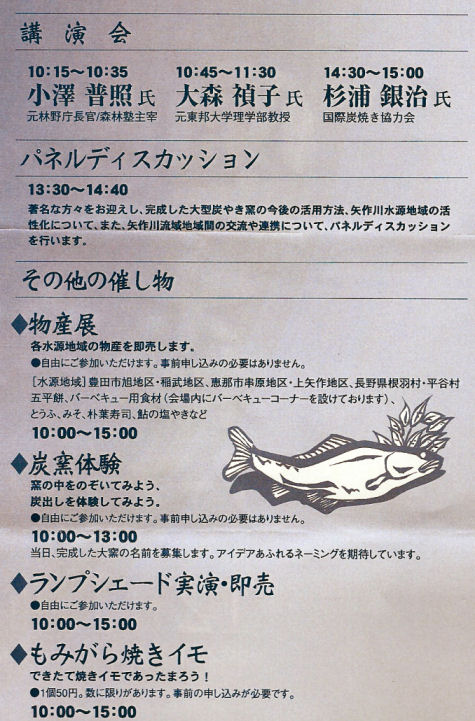 講演会
10:15〜10:35 10:45〜11:30 14:30〜15:00
小澤 普照 氏 大森 禎子 氏 杉浦 銀治 氏
元林野庁長官/森林塾主宰 元東邦大学理学部教授 国際炭焼き協力会
パネルディスカッション
13:30〜14:40
著名な方々をお迎えし、完成した大型炭やき窯の今後の活用方法、矢作川水源地域の活
性化について、また、矢作川流域地域間の交流や連携について、パネルディスカッション
を行います。
その他の催し物
◆物産展
各水源地域の物産を即売します。
●自由にご参加いただけます。事前申し込みの必要はありません。
[水源地域]豊田市旭地区・稲武地区、恵那市串原地区・上矢作地区、長野県根羽村・平谷村
五平餅、バーベキュー用食材(会場内にバーベキューコーナーを設けております)、
とうふ、みそ、朴葉寿司、鮎の塩やきなど
10:00〜15:00
◆炭窯体験
窯の中をのぞいてみよう、
炭出しを体験してみよう。
●自由にご参加いただけます。事前申し込みの必要はありません。
10:00〜13:00
当日、完成した大窯の名前を募集します。アイデアあふれるネーミングを期待しています。
◆ランプシェード実演・即売
●自由にご参加いただけます。
10:00〜15:00
◆もみがら焼きイモ
できたて焼きイモであったまろう!
●1個50円。数に限りがあります。事前の申し込みが必要です。
10:00〜15:00